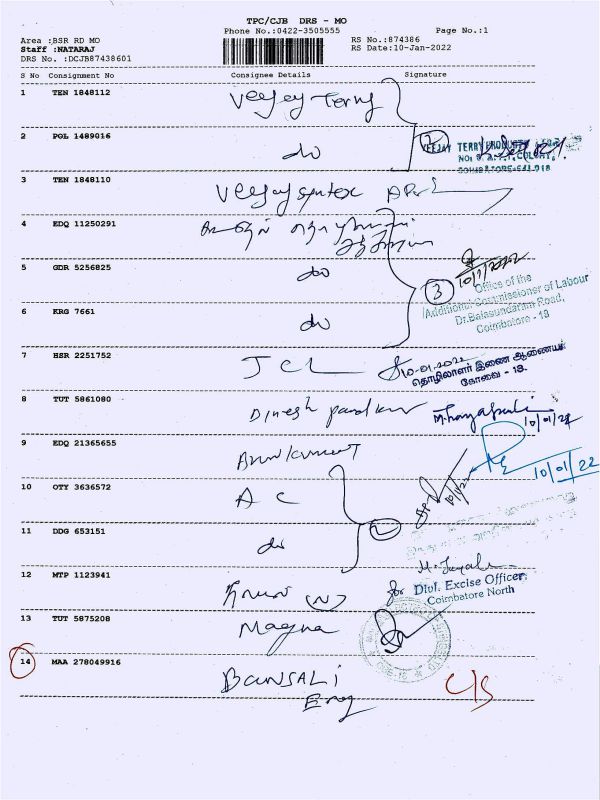 TPC/CJB DRS - MO
Phone No.:0422-3505555 Page No.:1
Area :BSR RD MO RS No.:874386
Staff :NATARAJ RS Date:10-Jan-2022
DRS No. :DCJB87438601
S No Consignment No Consignee Details Signature
1 TEN 1848112 Veejay Terry
2 POL 1489016 do
VEEJAY TERRY PRODUCTS
COLONY,
COIMBATORE-641 018
3 TEN 1848110 Veejay syntex
4 EDQ 11250291
10/1/2022
5 GDR 5256825 do
3 Office of the
Additional Commissioner of Labour
Dr.Balasundaram Road,
Coimbatore - 18
6 KRG 7661 do
7 HSR 2251752 JCL 10-01-2022
தொழிலாளர் இணை ஆணையர்
கோவை - 18.
8 TUT 5861080 Dinesh 10/01/22
9 EDQ 21365655 10/01/22
10 OTY 3636572 AC 10/1/22
11 DDG 653151 do 2
12 MTP 1123941
for Divl. Excise Officer,
Coimbatore North
13 TUT 5875208 Magna
14 MAA 278049916 BANSALi
Eng C/S